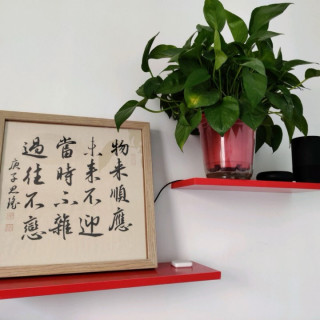 物来順應
未来不迎
當時不雜
過往不戀
庚子